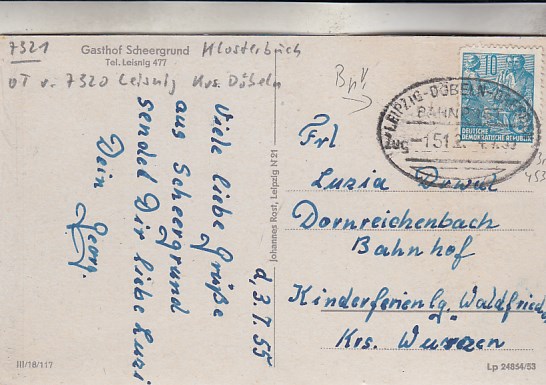 7321
Gasthof Scheergrund
Tel. Leisnig 477
Klosterbuch
OT v. 7320 Leisnig Krs. Döbeln
d, 3. 7. 55
Viele liebe Grüße
aus Scheergrund
sendet Dir liebe Luzi
Dein Georg.
Johannes Rost, Leipzig N 21
BpV
10
DEUTSCHE
DEMOKRATISCHE REPUBLIK
LEIPZIG-DÖBELN-
BAHNPOST
ZUG
Frl
Luzia
Dornreichenbach
Bahnhof
Kinderferienlg. Waldfrieden
Krs. Wurzen
III/18/117
Lp 24854/53